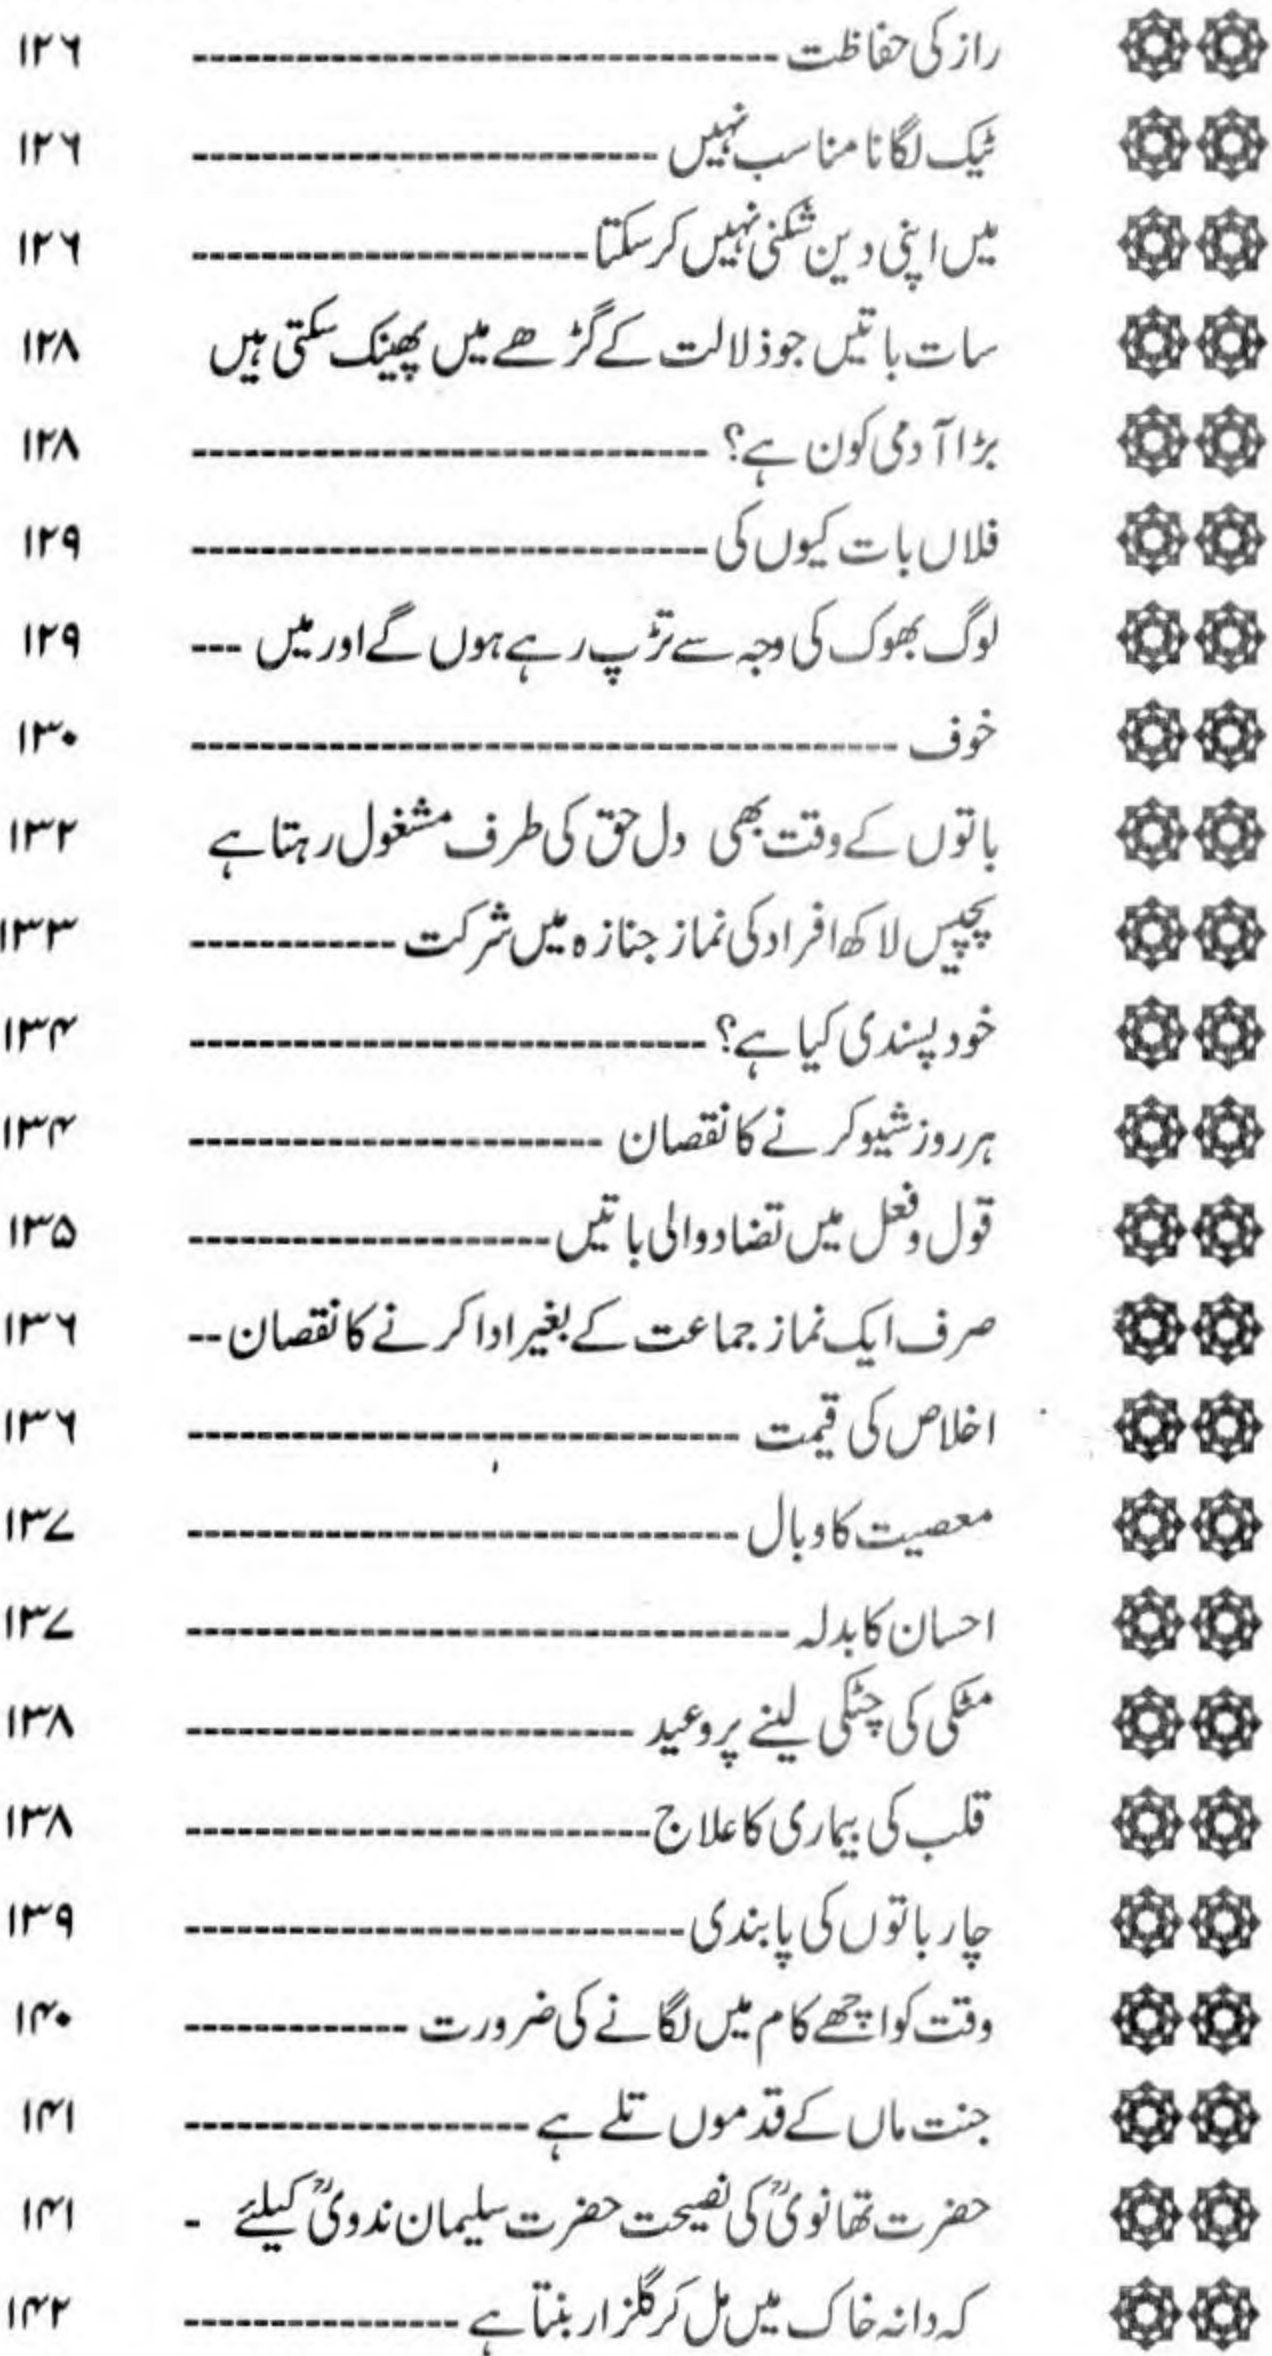 راز کی حفاظت -------------------------------- ۱۲۶
ٹیک لگانا مناسب نہیں -------------------------- ۱۲۶
میں اپنی دین شکنی نہیں کر سکتا ---------------------- ۱۲۶
سات باتیں جو ذلالت کے گڑھے میں پھینک سکتی ہیں ۱۲۸
بڑا آدمی کون ہے؟ ----------------------------- ۱۲۸
فلاں بات کیوں کی ----------------------------- ۱۲۹
لوگ بھوک کی وجہ سے تڑپ رہے ہوں گے اور میں --- ۱۲۹
خوف --------------------------------------- ۱۳۰
باتوں کے وقت بھی دل حق کی طرف مشغول رہتا ہے ۱۳۲
پچیس لاکھ افراد کی نماز جنازہ میں شرکت ------------ ۱۳۳
خود پسندی کیا ہے؟ ----------------------------- ۱۳۴
ہر روز شیو کرنے کا نقصان ----------------------- ۱۳۴
قول و فعل میں تضاد والی باتیں -------------------- ۱۳۵
صرف ایک نماز جماعت کے بغیر ادا کرنے کا نقصان -- ۱۳۶
اخلاص کی قیمت ------------------------------- ۱۳۶
معصیت کا وبال ------------------------------- ۱۳۷
احسان کا بدلہ ---------------------------------- ۱۳۷
مٹکی کی چٹکی لینے پر وعید ------------------------- ۱۳۸
قلب کی بیماری کا علاج -------------------------- ۱۳۸
چار باتوں کی پابندی ---------------------------- ۱۳۹
وقت کو اچھے کام میں لگانے کی ضرورت ------------- ۱۴۰
جنت ماں کے قدموں تلے ہے ------------------- ۱۴۱
حضرت تھانویؒ کی نصیحت حضرت سلیمان ندویؒ کیلئے - ۱۴۱
کہ دانہ خاک میں مل کر گلزار بنتا ہے --------------- ۱۴۲